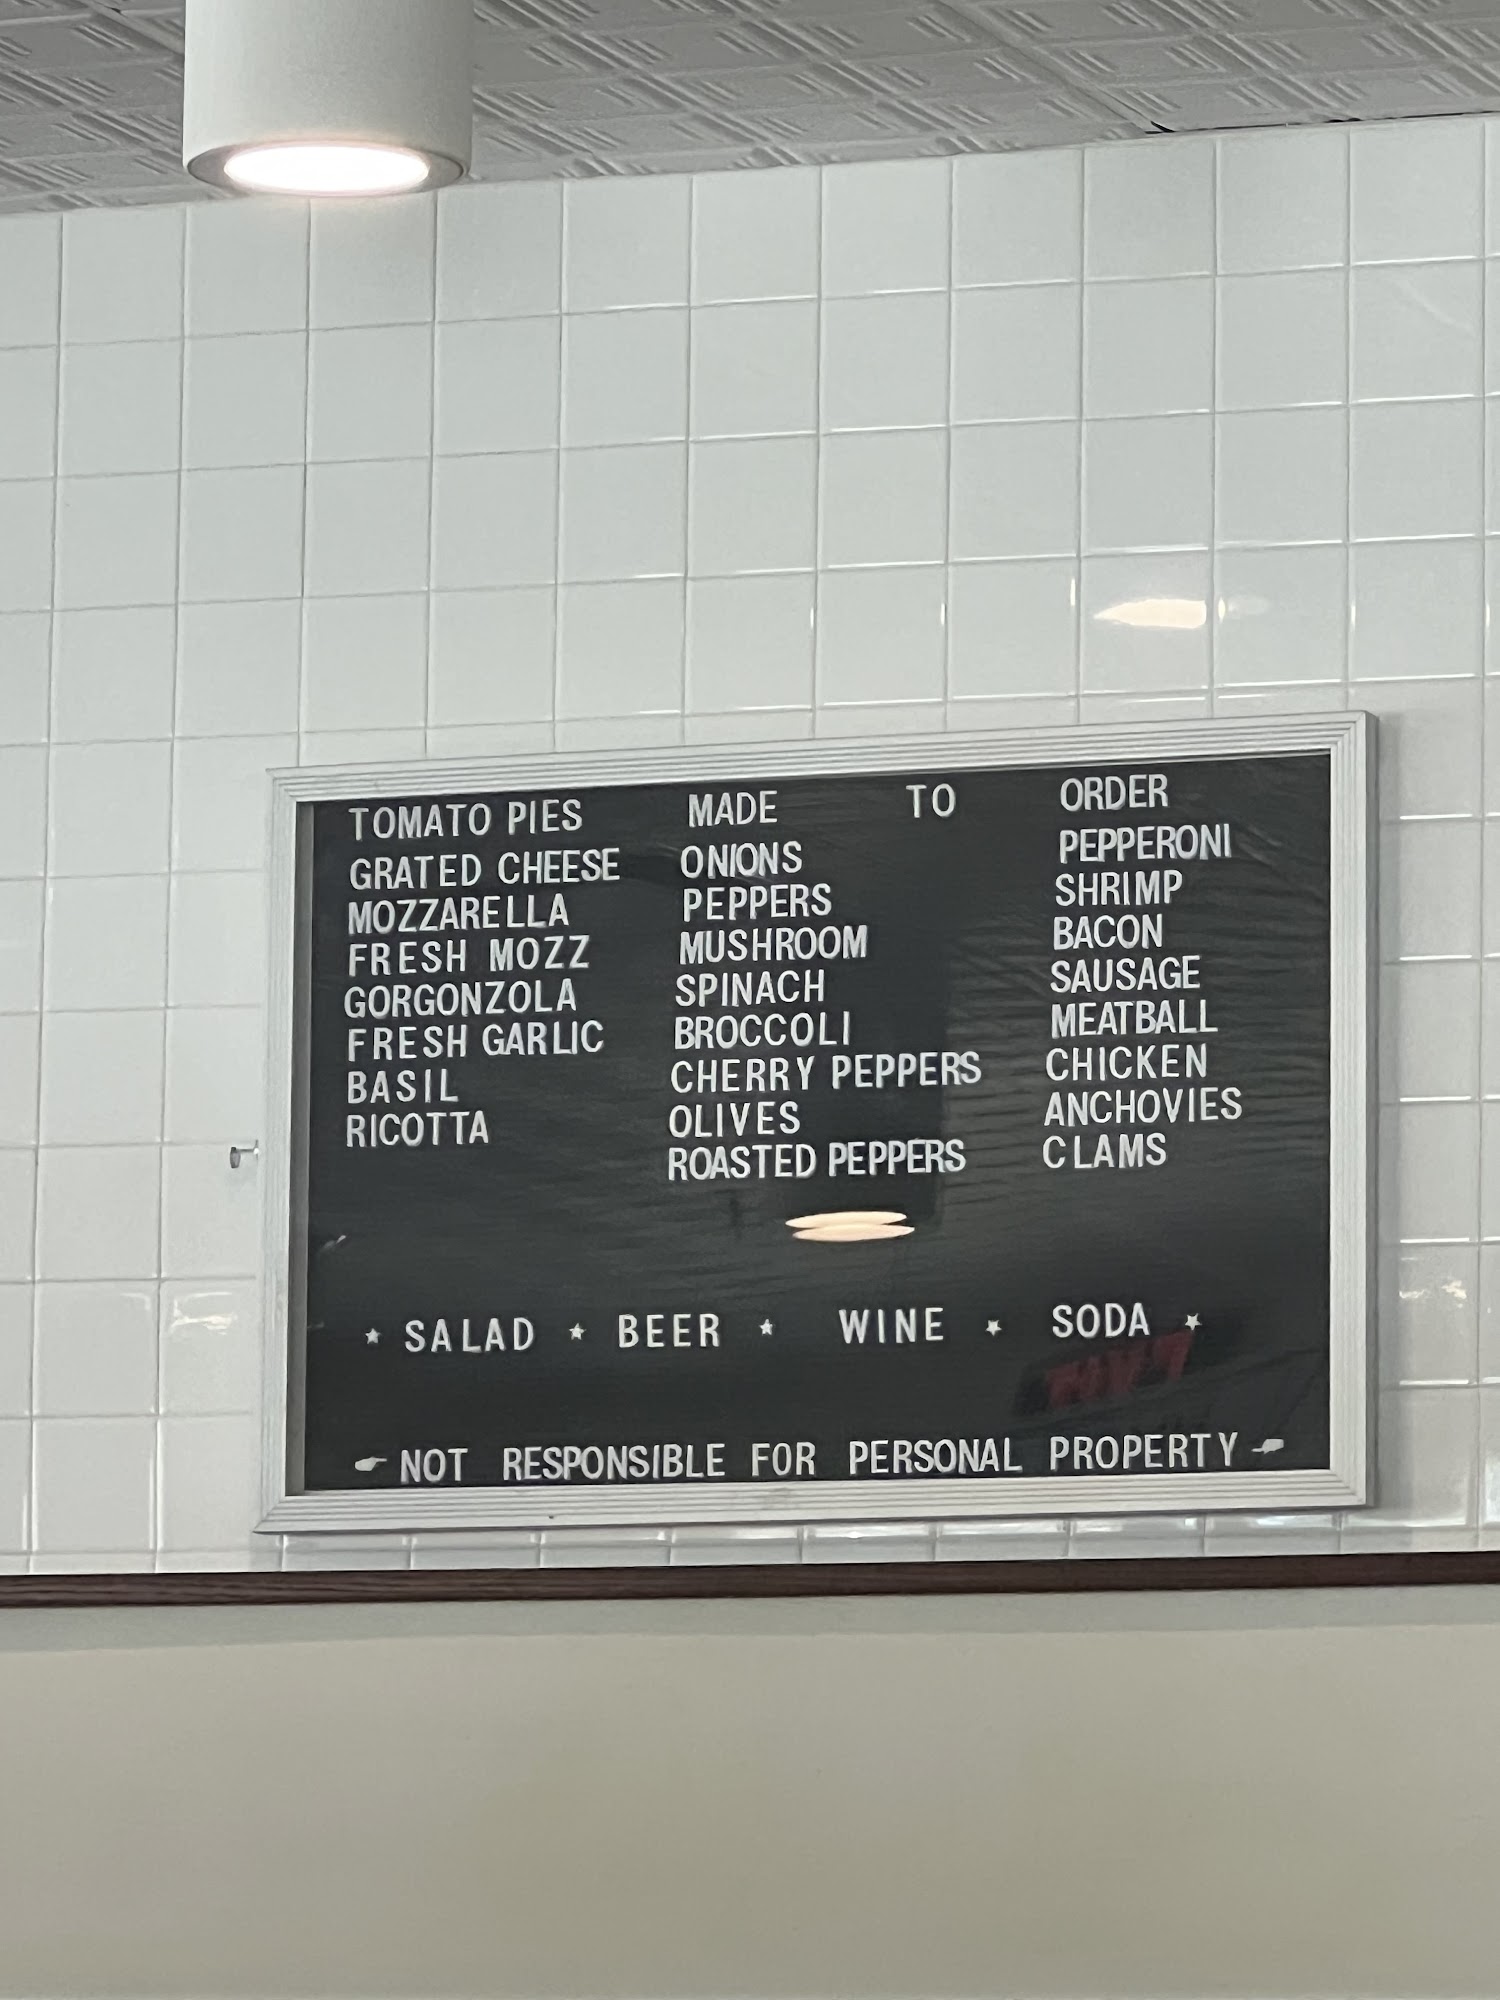 TOMATO PIES MADE TO ORDER
GRATED CHEESE
MOZZARELLA
FRESH MOZZ
GORGONZOLA
FRESH GARLIC
BASIL
RICOTTA
ONIONS
PEPPERS
MUSHROOM
SPINACH
BROCCOLI
CHERRY PEPPERS
OLIVES
ROASTED PEPPERS
PEPPERONI
SHRIMP
BACON
SAUSAGE
MEATBALL
CHICKEN
ANCHOVIES
CLAMS
★ SALAD ★ BEER ★ WINE ★ SODA ★
NOT RESPONSIBLE FOR PERSONAL PROPERTY